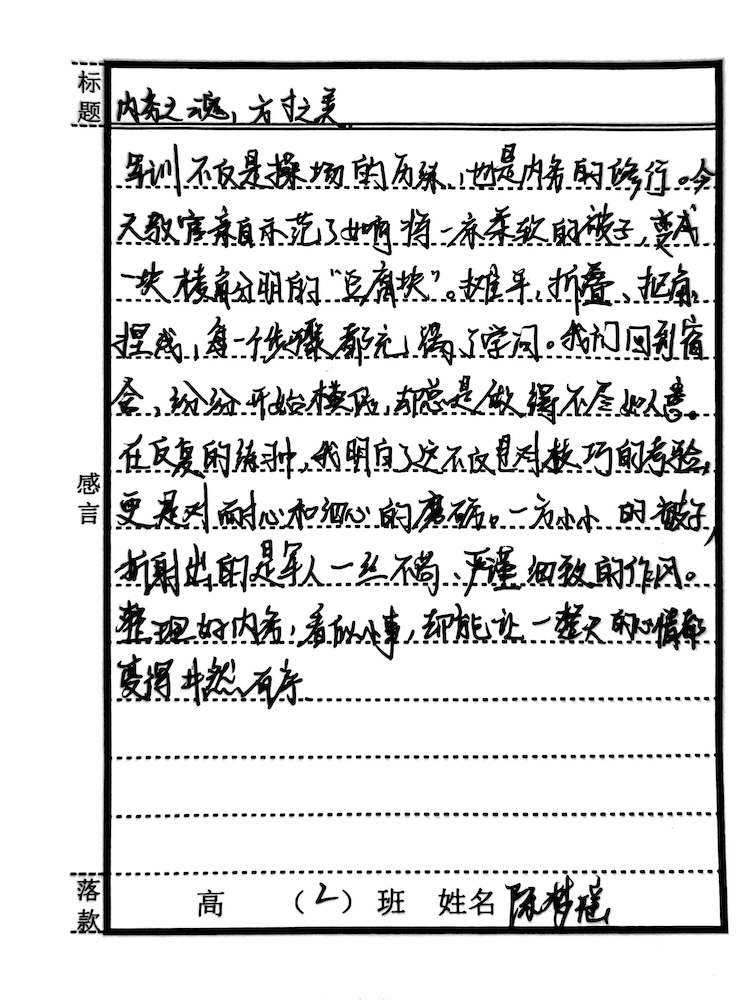 标题
内务之魂，方寸之美
军训不仅是操场的历练，也是内务的修行。今
天教官亲自示范了如何将一床柔软的被子，变成
一块棱角分明的“豆腐块”。推平，折叠、抠角、
捏线，每一个步骤都充满了学问。我们回到宿
舍，纷纷开始模仿，却总是做得不尽如人意。
感言
在反复的练习中，我明白了这不仅是对技巧的考验，
更是对耐心和细心的磨砺。一方小小的被子，
折射出的是军人一丝不苟、严谨细致的作风。
整理好内务，看似小事，却能让一整天的心情都
变得井然有序
落款
高 （2）班 姓名 陈梦瑶